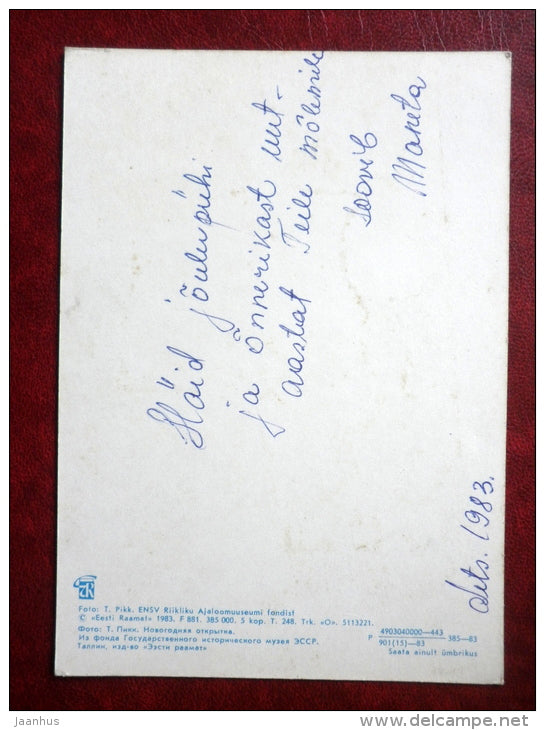 Häid jõulupühi
ja õnnerikast uut-
aastat Teile mõlemile
soovib
Maneta
Dets. 1983.
Foto: T. Pikk. ENSV Riikliku Ajaloomuuseumi fondist
© «Eesti Raamat» 1983. F 881. 385 000. 5 kop. T. 248. Trk. «O». 5113221.
Фото: Т. Пикк. Новогодняя открытка.
Из фонда Государственного исторического музея ЭССР.
Таллин, изд-во «Ээсти раамат»
Р 4903040000—443
901(15)—83 385—83
Saata ainult ümbrikus
jaanhus
www.delcampe.net